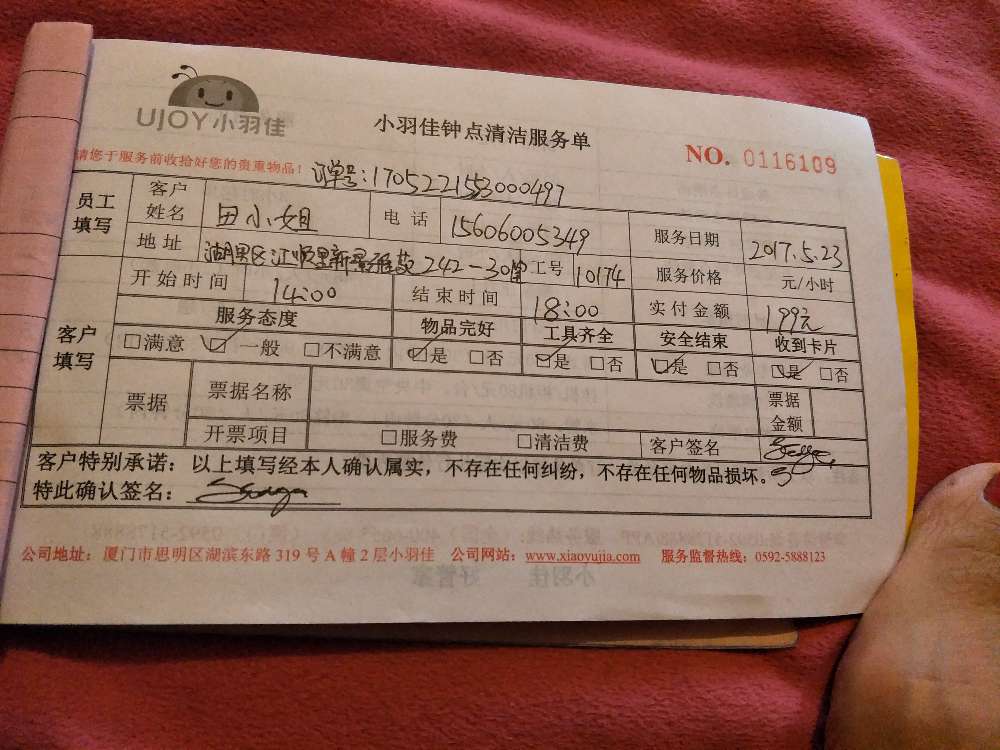 UJOY小羽佳
小羽佳钟点清洁服务单
NO. 0116109
请您于服务前收拾好您的贵重物品！
订单号:1705221553000497
员工填写 客户姓名 田小姐 电话 15606005349 服务日期 2017.5.23
地址 湖里区江顺里新景雅苑242-30 工号 10174 服务价格 元/小时
客户填写 开始时间 14:00 结束时间 18:00 实付金额 199元
服务态度 物品完好 工具齐全 安全结束 收到卡片
□满意 ☑一般 □不满意 ☑是 □否 ☑是 □否 ☑是 □否 ☑是 □否
票据 票据名称 票据金额
开票项目 □服务费 □清洁费 客户签名
客户特别承诺：以上填写经本人确认属实，不存在任何纠纷，不存在任何物品损坏。
特此确认签名：
公司地址：厦门市思明区湖滨东路 319 号 A 幢 2 层小羽佳 公司网站：www.xiaoyujia.com 服务监督热线：0592-5888123